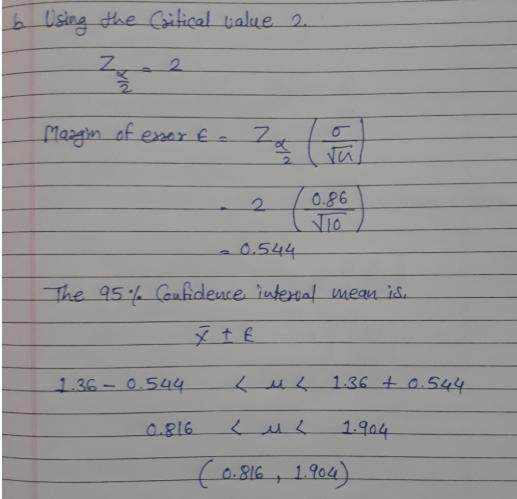 b Using the Critical value 2.
Z α/2 = 2
Margin of error E = Z α/2 (σ/√n)
= 2 (0.86/√10)
= 0.544
The 95% Confidence interval mean is.
x̄ ± E
1.36 - 0.544 < μ < 1.36 + 0.544
0.816 < μ < 1.904
(0.816, 1.904)